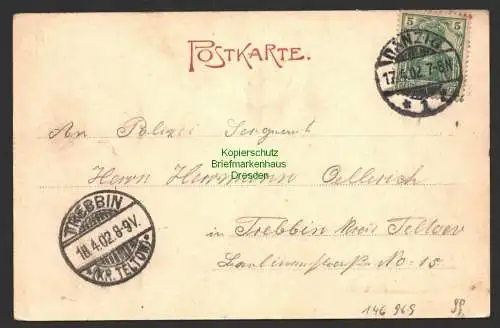 POSTKARTE.
5
DANZIG
17.4.02.7-8N.
* 1 *
An Polizei Sergeant
Kopierschutz
Briefmarkenhaus
Dresden
Herrn Herrmann Oellerich
in Trebbin Kreis Teltow
No 15
TREBBIN
18.4.02.8-9V.
(KR. TELTOW)
146 969